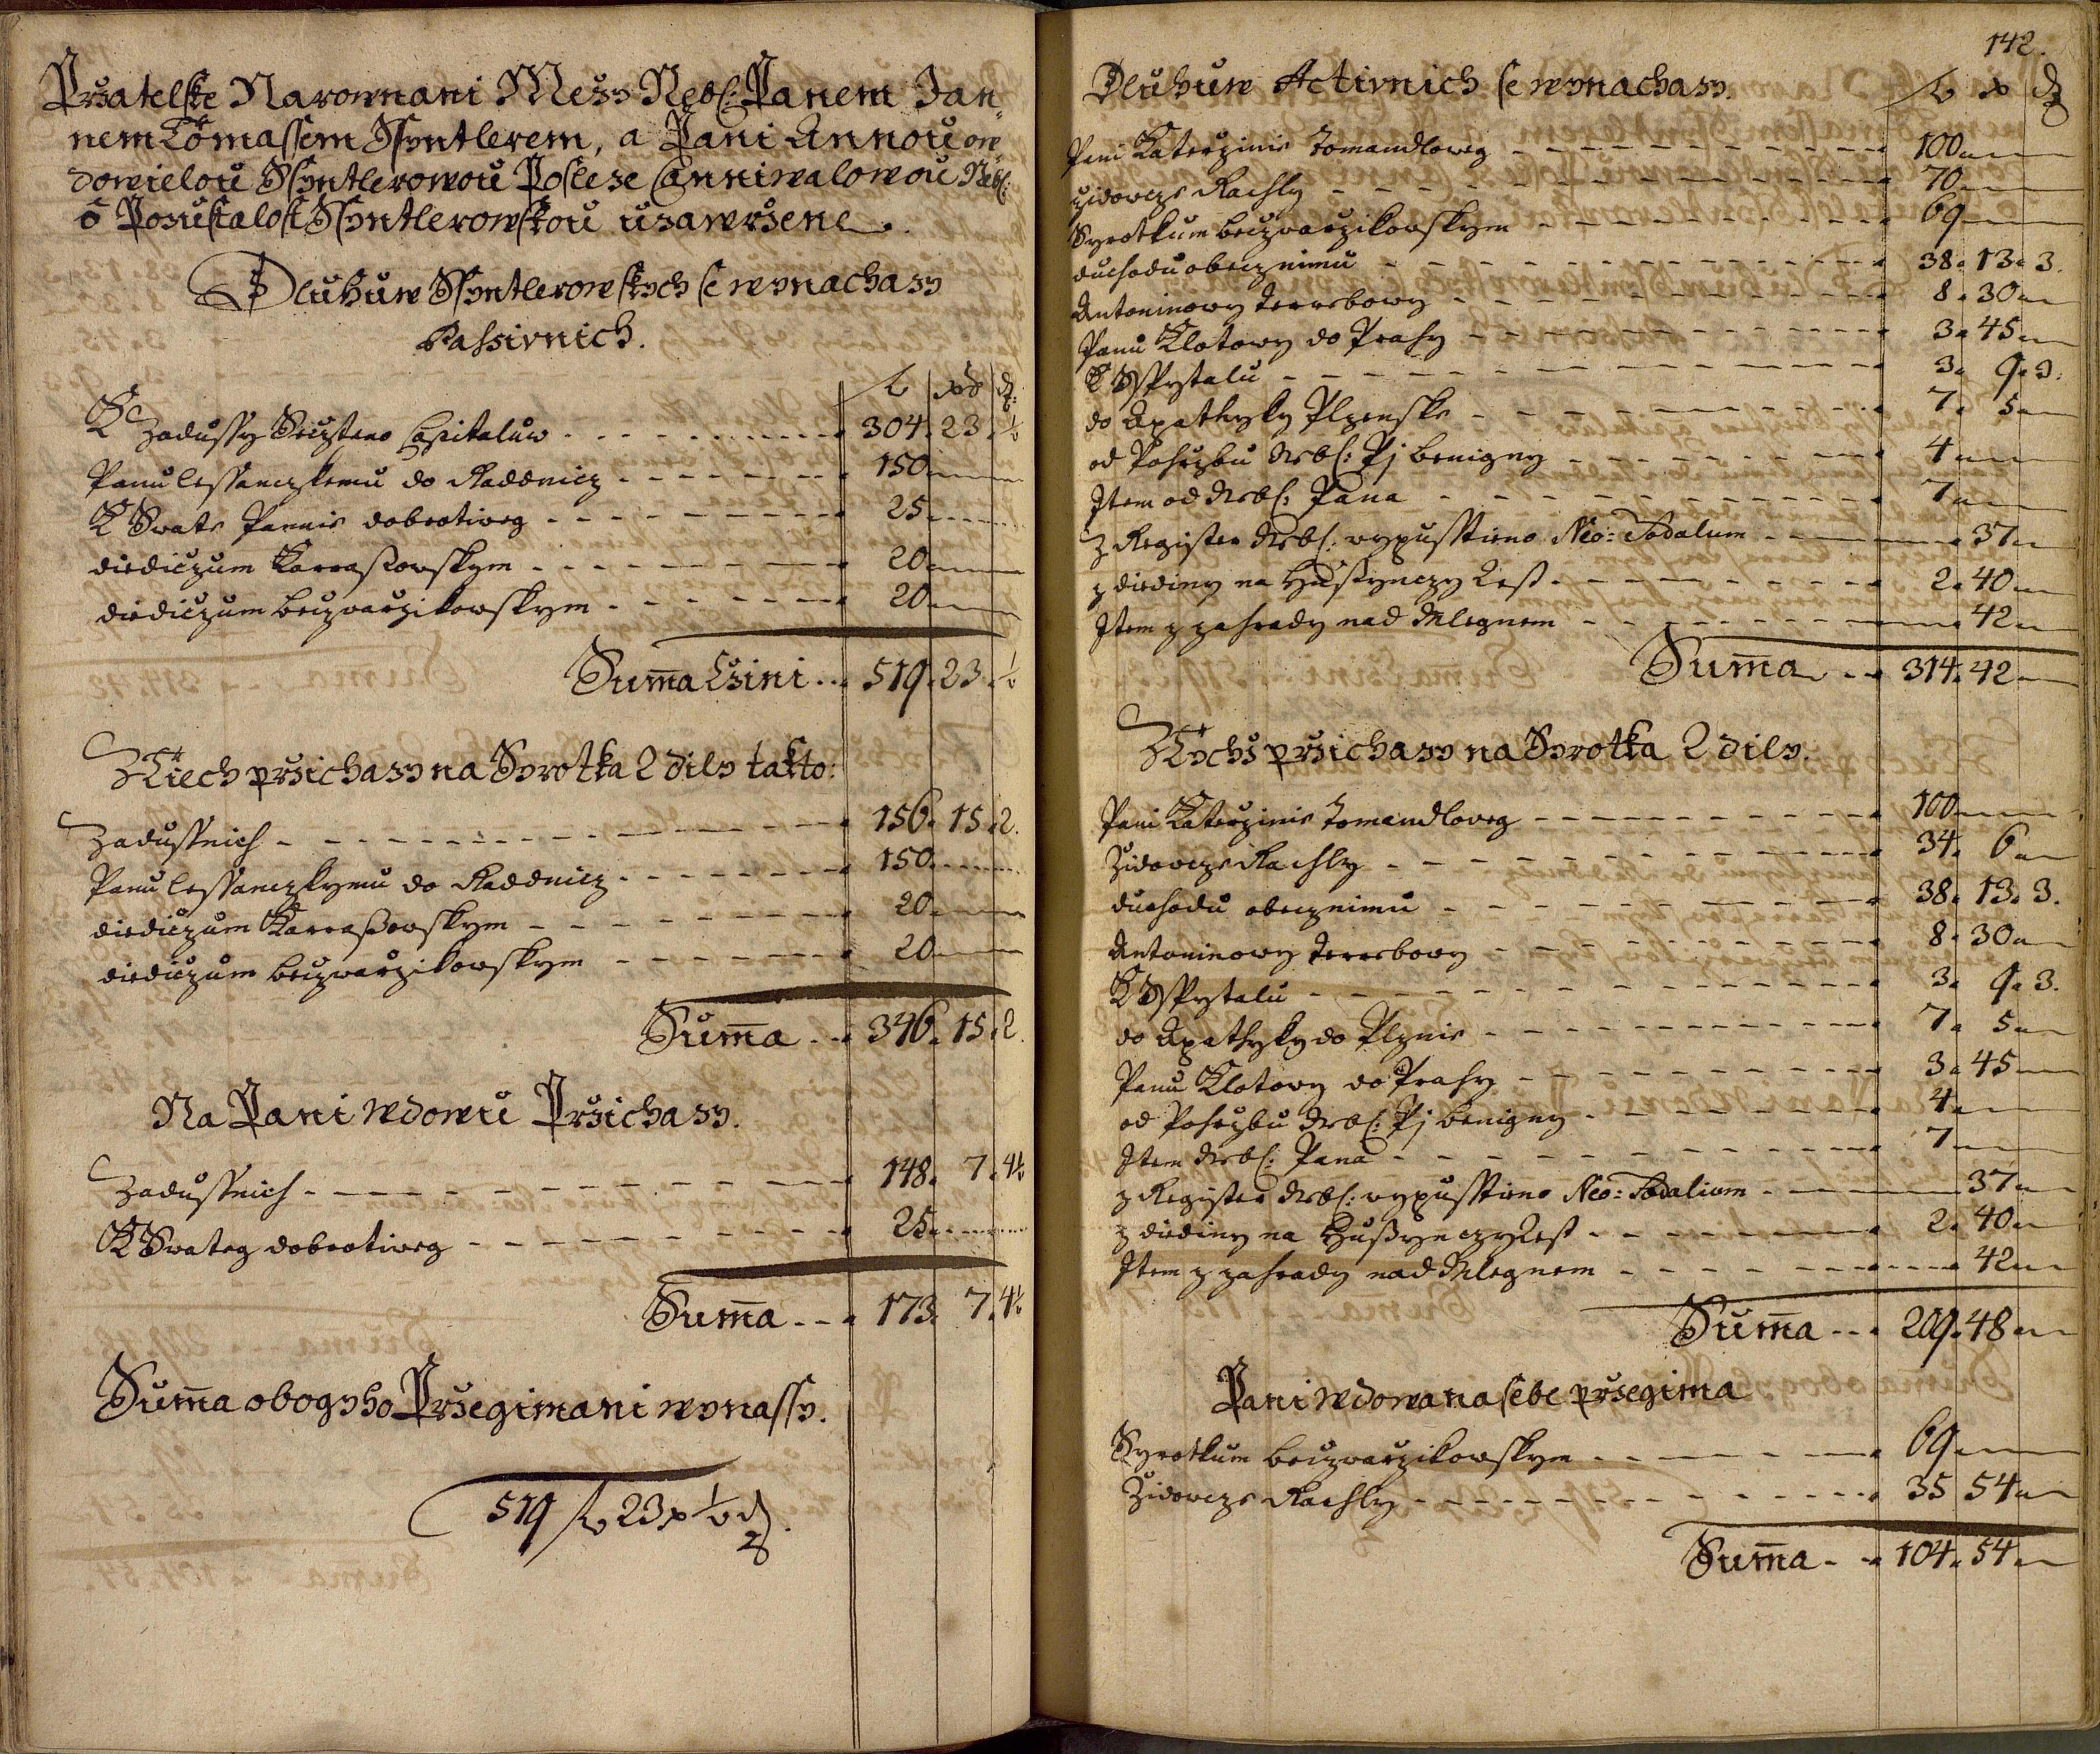 Przatelske Narownani Mezy Nebo: Panem Jan„
nem Tomassem Ssyntlerem, a Pani Annou ow
dowielou Ssyntlerowou Posleze Canniwalowou Neb:
o Pozustalost Ssyntlerowskou uzawrzene.
Dluhuw Ssyntlerowskych se wynachazy
Passivnich.
fl xr d:
K Zadussy Seczteno Capitaluw 304. 23. ½
Panu Lessanczkemu do Raddnicz 150
K Swate Pannie dobrotiweg 25
diediczum Karraßowskym 20
diediczum beczwarzikowskym 20
Summa Czini 519. 23. ½
Z Tiech przichazy na Syrotka 2 dily takto:
Zadussnich 156. 15. 2.
Panu Lessanczkymu do Raddnicz 150
diediczum Karraßowskym 20
diediczum beczwarzikowskym 20
Summa 346. 15. 2.
Na Pani wdowu Przichazy.
Zadussnich 148. 7. 4½
K Swateg dobrotiweg 25
Summa 173. 7. 4½
Summa obogyho Przegimani wynassy.
519 fl 23 x ½ d.
142.
Dluhuw Activnich se wynachazy.
fl x d
Pani Katerzinie Tomandloweg 100
Zidowcze Rachly 70
Syrotkum beczwarzikowskym 69
duchodu obecznimu 38. 13. 3.
Antoninowy Ferrebowy 8. 30
Panu Klotowy do Prahy 3. 45
K Sspytalu 3. 9. 3.
do Apathyky Plzenske 7. 5
od Pohrzbu Neb: Pj benigny 4
Item od Neb: Pana 7
z Register Neb: wypusstieno Neo: Sodalum 37
z diediny na Hußynczy Lest 2. 40
Item z zahrady nad Mlegnem 42
Summa 314. 42
Z Tychz przichazy na Syrotka 2 dily.
Pani Katerzinie Tomandloweg 100
Zidowcze Rachly 34. 6
duchodu obecznimu 38. 13. 3.
Antoninowy Ferrebowy 8. 30
K Sspytalu 3. 9. 3.
do Apathyky do Plznie 7. 5
Panu Klotowy do Prahy 3. 45
od Pohrzbu Neb: Pj benigny 4
Item Neb: Pana 7
z Register Neb: wypusstieno Neo: Sodalium 37
z diediny na Hußynczy Lest 2. 40
Item z zahrady nad Mlegnem 42
Summa 209. 48
Pani wdowa na sebe przegima
Syrotkum beczwarzikowskym 69
Zidowcze Rachly 35 54
Summa 104. 54